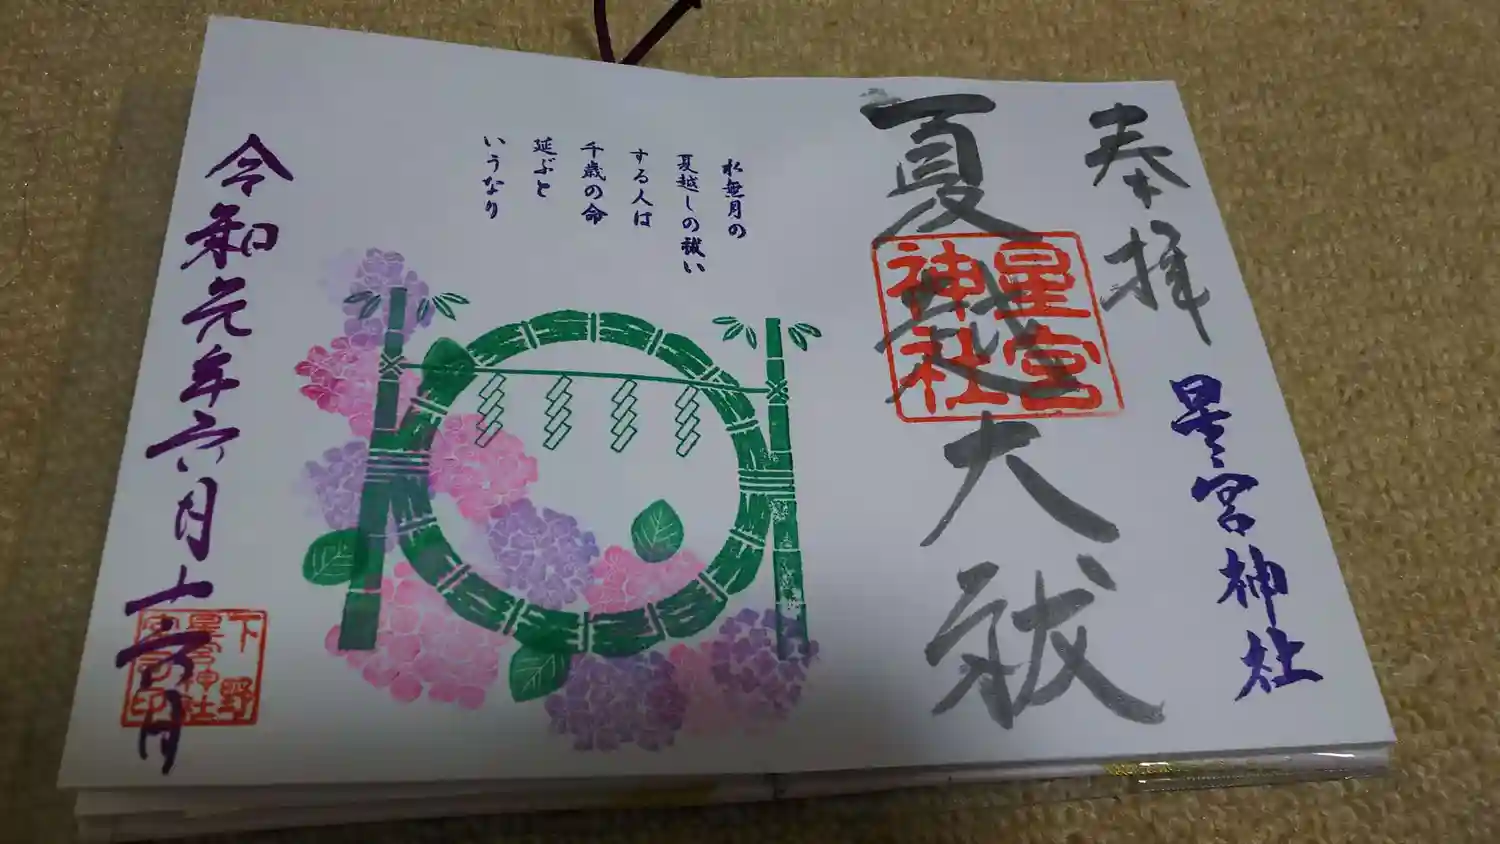 奉拝
星宮神社
夏越大祓
星宮
神社
水無月の
夏越しの祓い
する人は
千歳の命
延ぶと
いうなり
令和元年六月十六日
下野
星宮神社